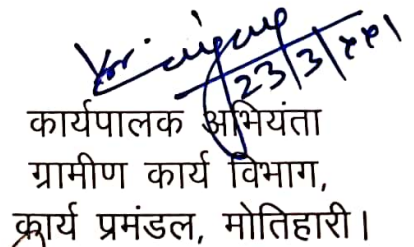 23/3/
कार्यपालक अभियंता
ग्रामीण कार्य विभाग,
कार्य प्रमंडल, मोतिहारी।